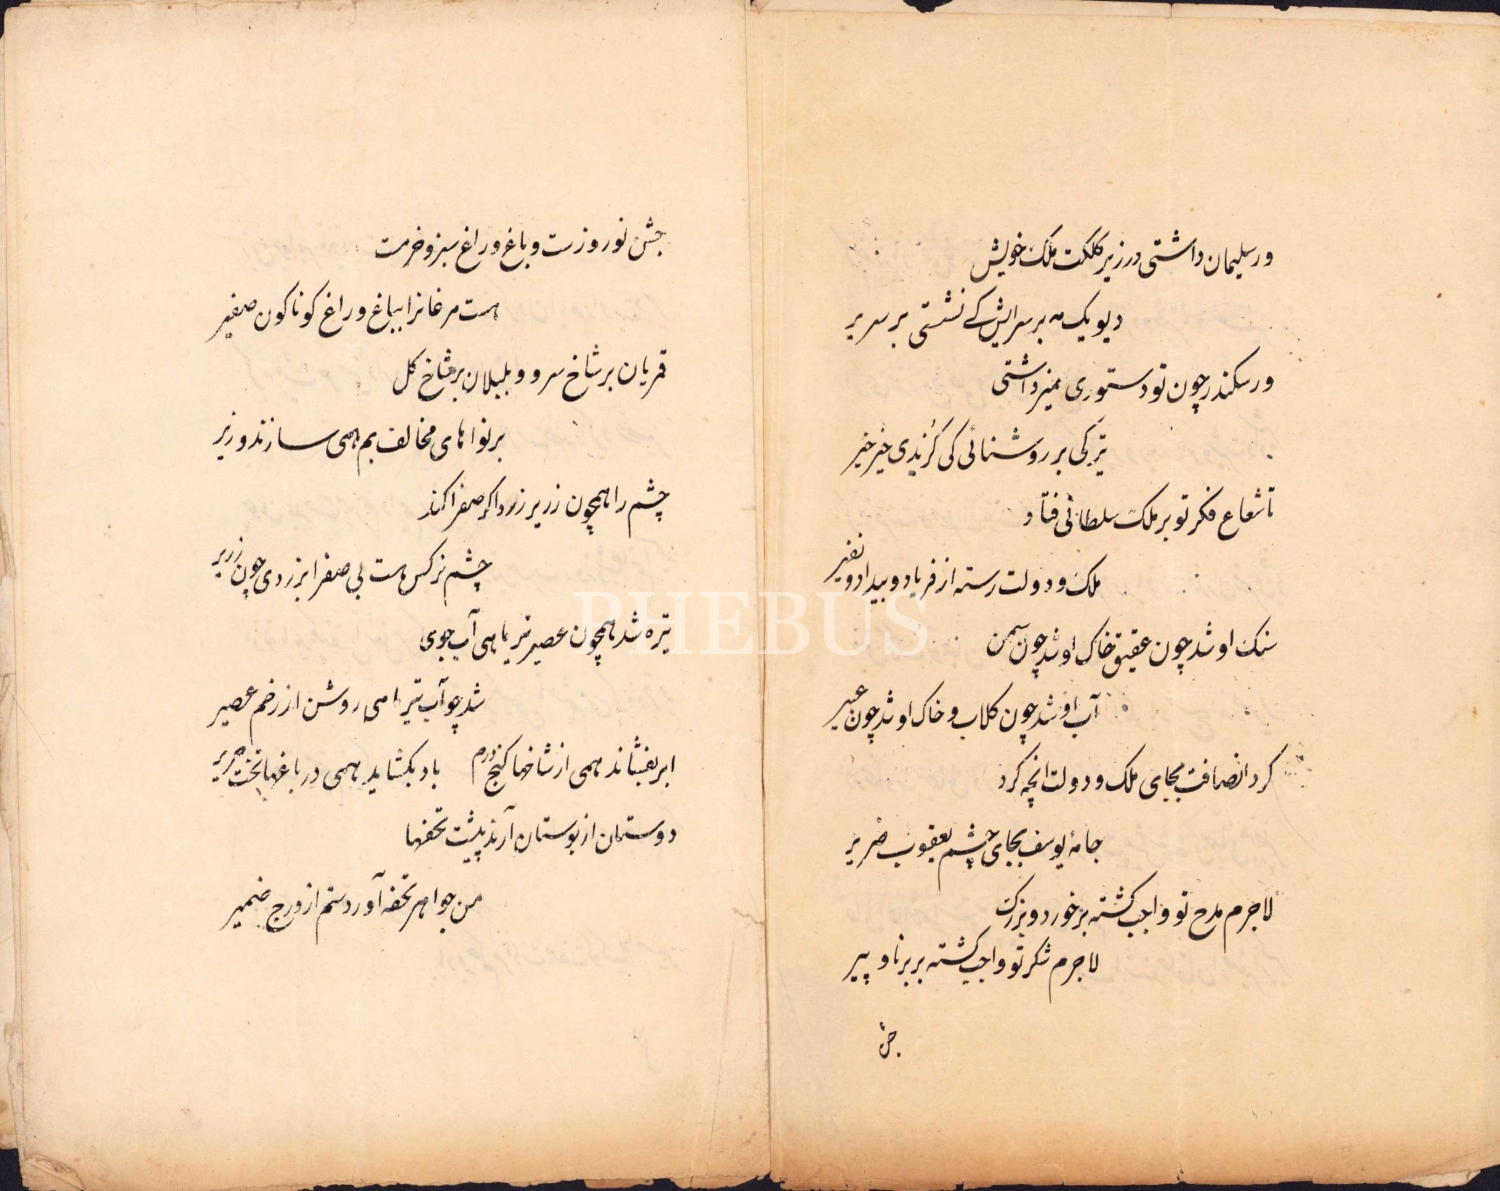 ور سلیمان داشتی در زیر کلکت ملک خویش
دیو یک مه بر سرایش کے نشستی بر سریر
ور سکندر چون تو دستوری ممیز داشتی
تیرگی بر روشنائی کی گزیدی خیر خیر
تا شعاع فکر تو بر ملک سلطانی فتاد
ملک و دولت رسته از فریاد و بیداد و نفیر
سنک او شد چون عقیق خاک او شد چون سمن
آب او شد چون کلاب و خاک او شد چون عبیر
کرد انصافت بجای ملک و دولت انچه کرد
جامهٔ یوسف بجای چشم یعقوب ضریر
لاجرم مدح تو واجب کشته بر خورد و بزرک
لاجرم شکر تو واجب کشته بر برنا و پیر
جش
جشن نوروزست و باغ و راغ سبز و خرمت
هست مرغانرا بباغ و راغ کوناکون صفیر
قمریان بر شاخ سرو و بلبلان بر شاخ کل
بر نواهای مخالف بم همی سازند و زیر
چشم را همچون زریر زرد اکر صفرا کند
چشم نرکس هست بی صفرا بزردی چون زریر
تیره شد همچون عصیر تیر ماهی آب جوی
شد چو آب تیر ماهی روشن از رخم عصیر
ابر بفشاند همی از شاخها کنج درم باد بکشاید همی در باغها تخت حریر
دوستان از بوستان آرند پیشت تحفها
من جواهر تحفه آوردستم از درج ضمیر
PHEBUS